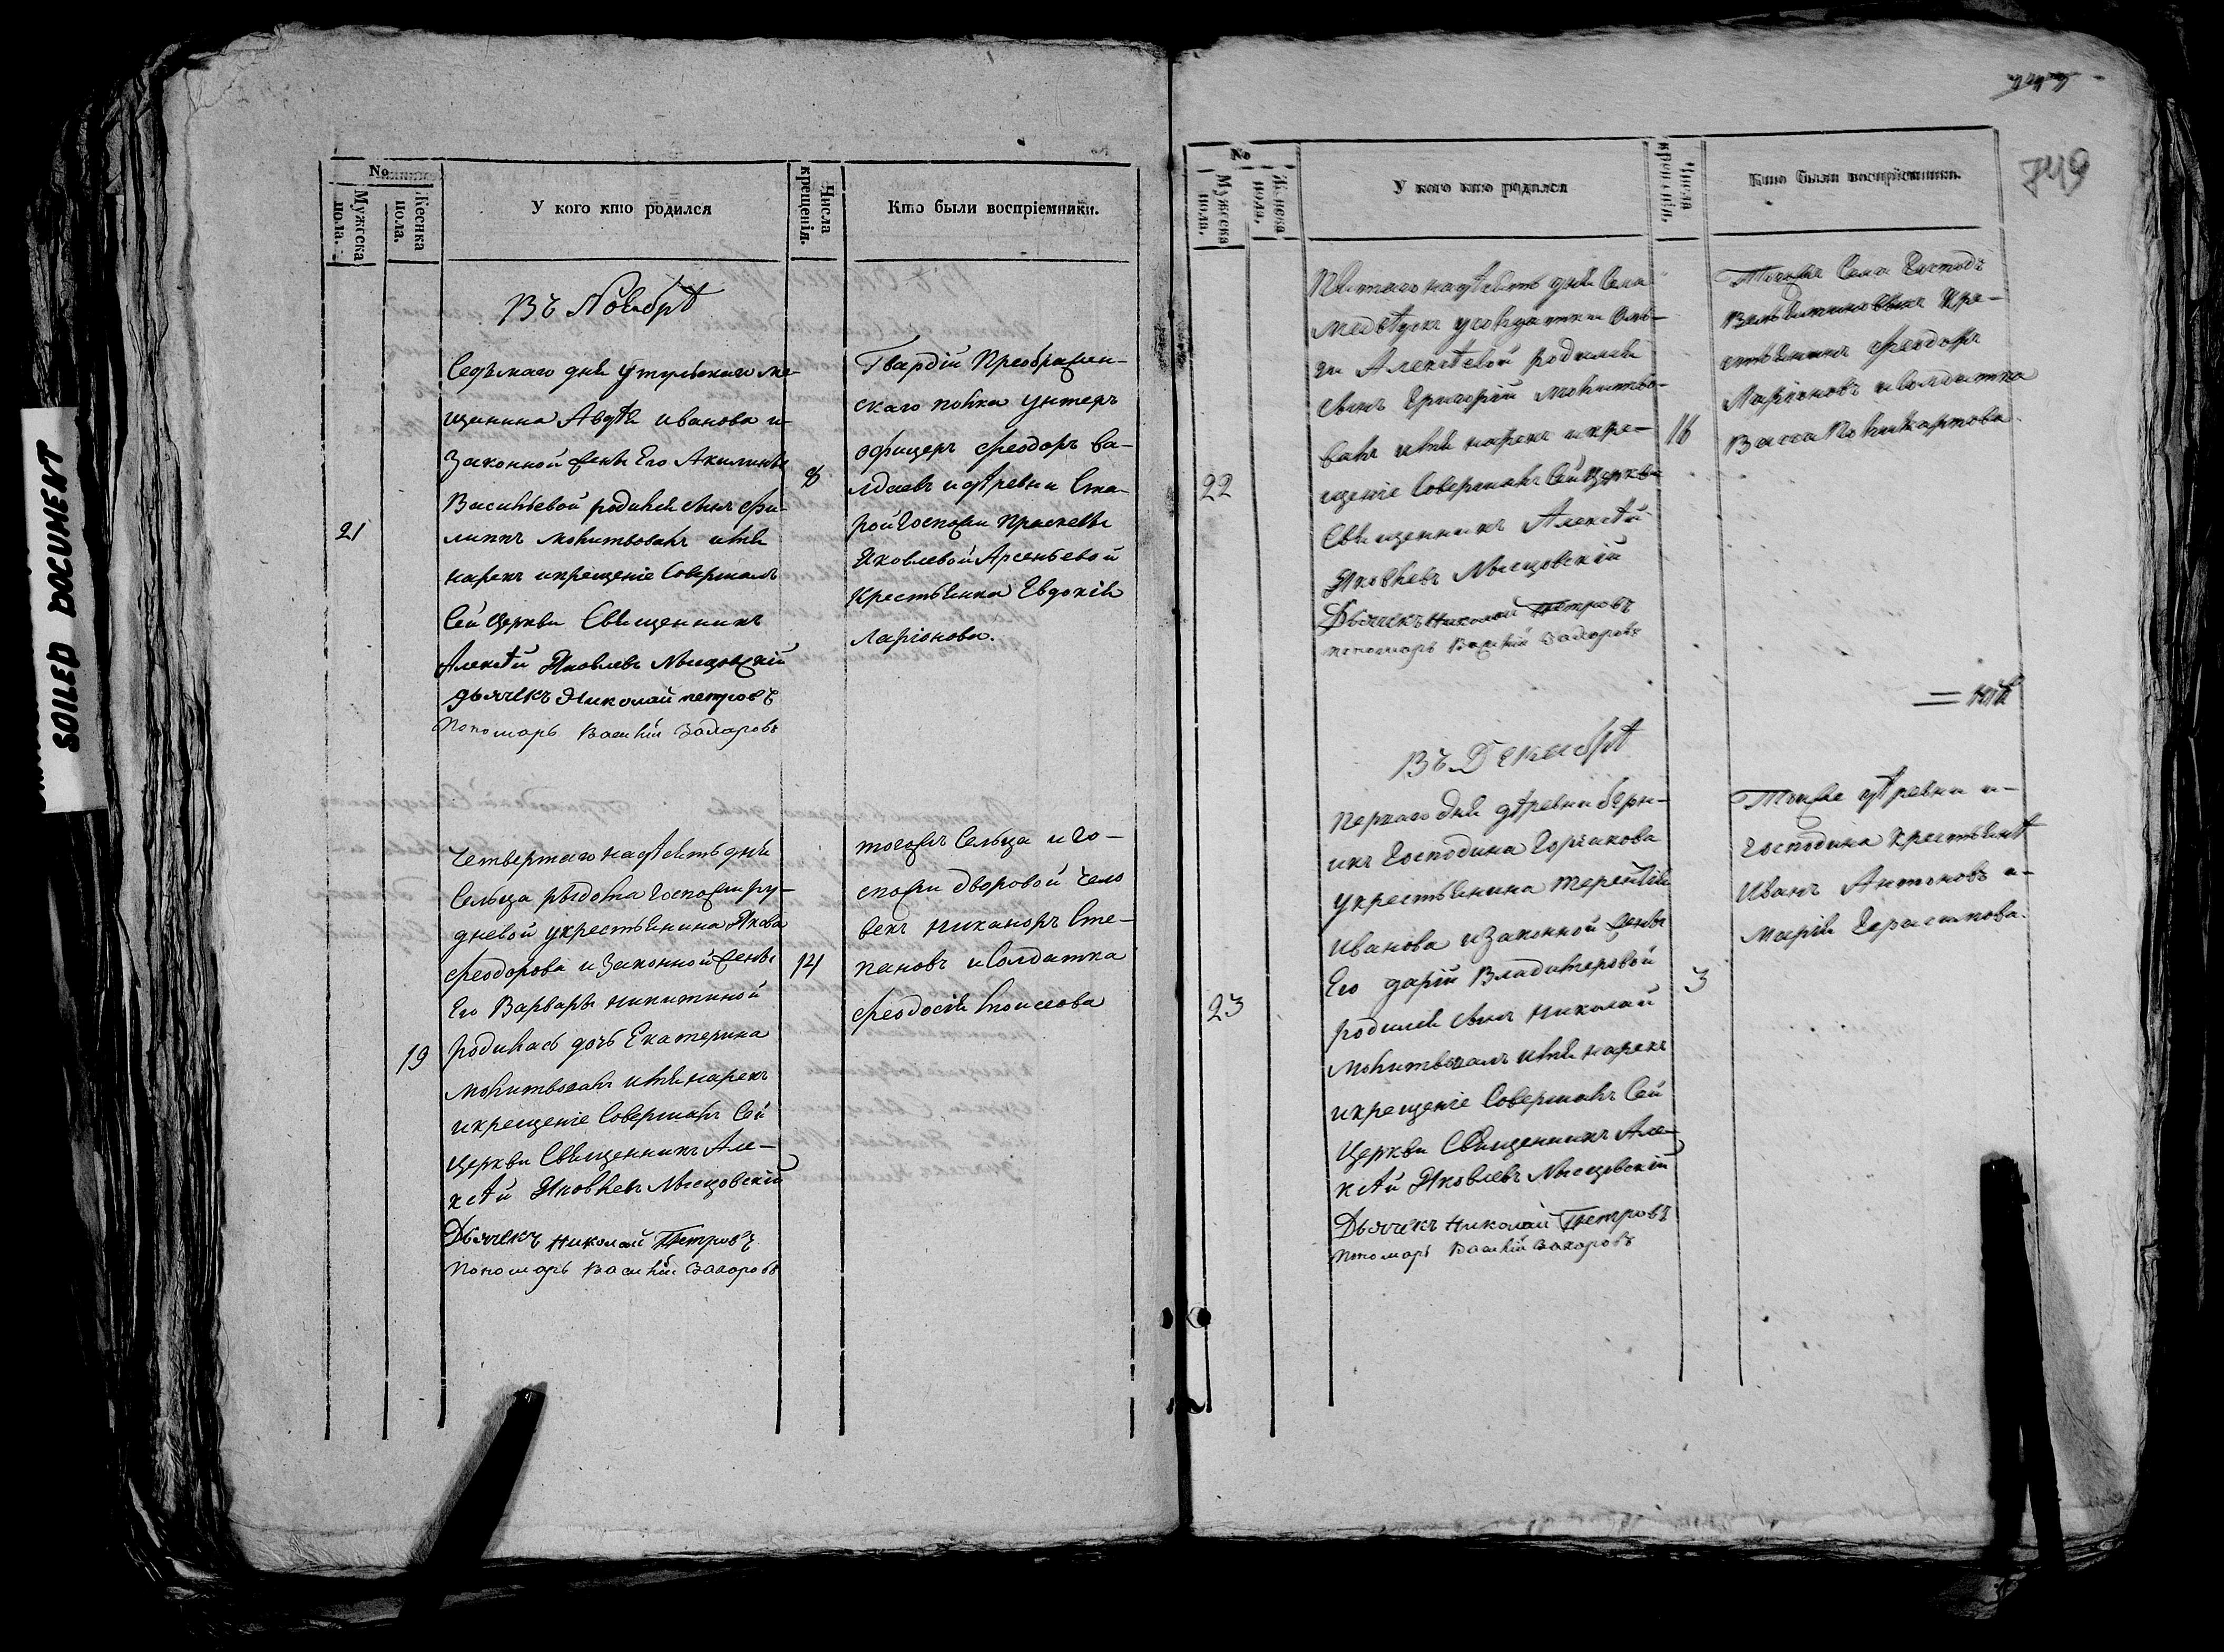 SOILED DOCUMENT
No
Мужеска пола.
Женска пола.
У кого кто родился
Числа крещенія.
Кто были воспріемники.
Въ Ноябрѣ
21
Седьмаго дня утульскаго ме-
щанина Авдѣя Иванова и
Законной жены Его Акилины
Васильевой родился сынъ Фи-
липпъ молитвовалъ имя
нарекъ икрещеніе Совершалъ
Сей Церкви Священникъ
Алексѣй Яковлевъ Мысцовскій
дьячекъ Николай петровъ
Пономарь Василій Захаровъ
8
Гвардіи Преображен-
скаго полка унтеръ
офицеръ Феодоръ
идѣревни Ста-
рой Госпожи Прасковьи
Яковлевой Арсеньевой
Крестьянка Евдокія
Ларіонова.
19
Четвертаго надѣсять дня
Сельца Госпожи Ру-
дневой укрестьянина Якова
Феодорова и Законной жены
Его Варвары Никитиной
родилась дочь Екатерина
молитвовалъ имя нарекъ
икрещеніе Совершалъ Сей
Церкви Священникъ Але-
ксѣй Яковлевъ Мысцовскій
Дьячекъ Николай Петровъ
Пономарь Василій Захаровъ
14
тогожъ Сельца и Го-
спожи дворовой чело
векъ Никаноръ Сте-
пановъ и Солдатка
Феодосія Моисеова
749
No
Мужеска пола.
Женска пола.
У кого кто родился
Числа крещенія.
Кто были воспріемники.
22
Пятаго надѣсять дня Села
Медвѣдки усолдатки Оль-
ги Алексѣевой родился
сынъ Григорій молитво-
валъ имя нарекъ икре-
щеніе Совершалъ Сей Церкви
Священникъ Алексѣй
Яковлевъ Мысцовскій
Дьячекъ Николай Петровъ
пономарь Василій Захаровъ
16
Тогожъ Села Господъ
Кре-
стьянинъ Феодоръ
Ларіоновъ исолдатка
Васса Поликарпова.
Въ Декабрѣ
23
Перваго дня дѣревни
Господина Горчакова
укрестьянина Терентія
Иванова и Законной жены
Его Даріи Владимеровой
родился сынъ Николай
молитвовалъ имя нарекъ
икрещеніе Совершалъ Сей
Церкви Священникъ Але-
ксѣй Яковлевъ Мысцовскій
Дьячекъ Николай Петровъ
Пономарь Василій Захаровъ
3
Тояже дѣревни и
Господина Крестьянѣ
Иванъ Антоновъ и
Марія Герасимова.